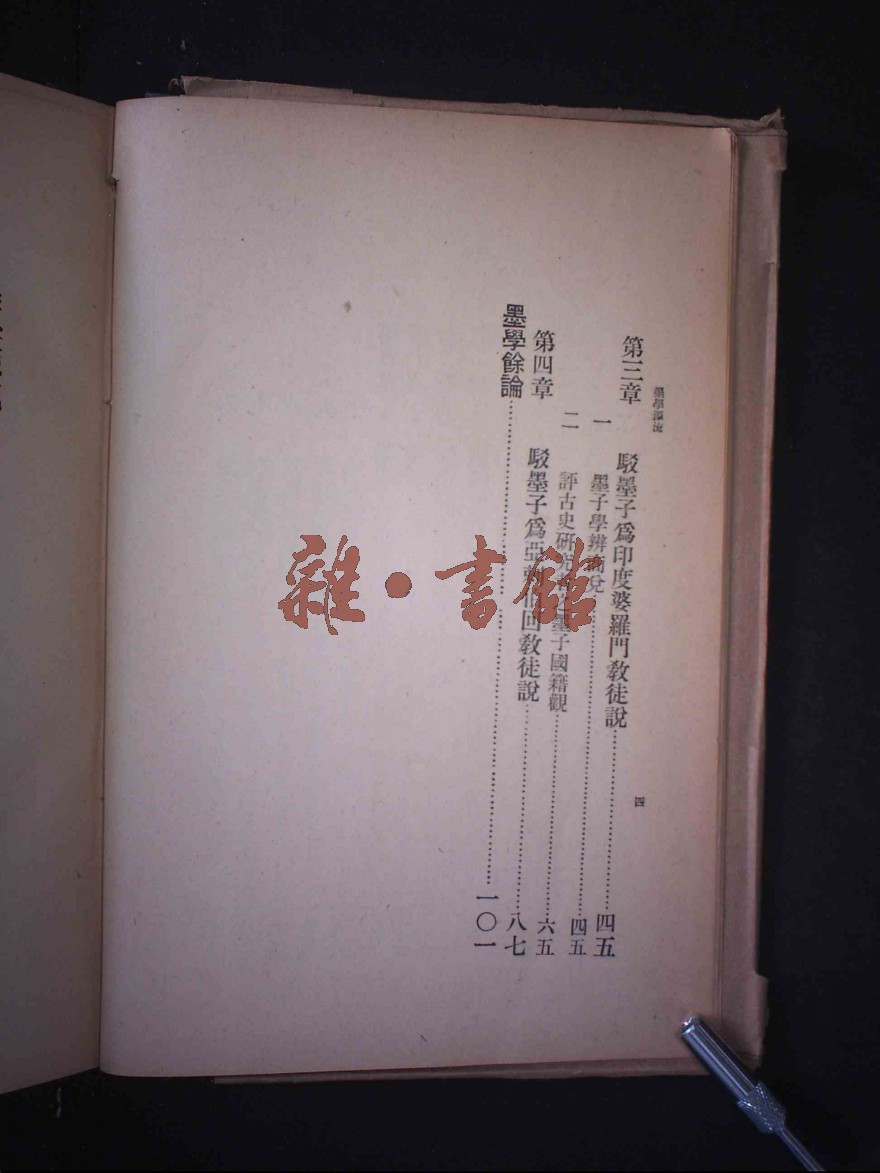 墨學源流
四
第三章 駁墨子爲印度婆羅門教徒說 四五
一 墨子學辨商兌 四五
二 評古史研究中之墨子國籍觀 六五
第四章 駁墨子爲亞剌伯回教徒說 八七
墨學餘論 一〇一
雜·書館